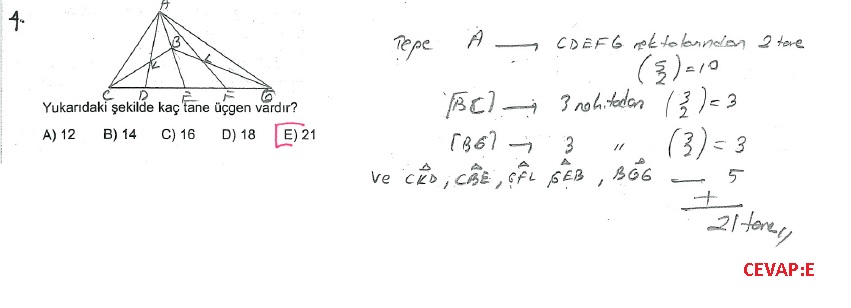 4.
A
B
K L
C D E F G
Yukarıdaki şekilde kaç tane üçgen vardır?
A) 12 B) 14 C) 16 D) 18 E) 21
Tepe A → CDEFG noktalarından 2 tane
(5 2) = 10
[BC] → 3 noktadan (3 2) = 3
[BG] → 3 " (3 2) = 3
ve CKD, CBE, GFL, GEB, BGG — 5
+
21 tane,,
CEVAP:E